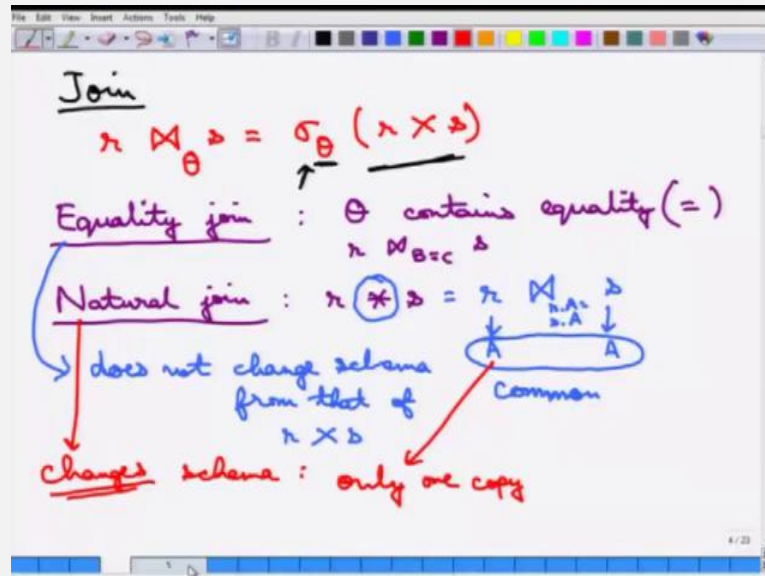 File Edit View Insert Actions Tools Help
Join
r ⋈θ s = σθ (r × s)
Equality join : θ contains equality (=)
r ⋈B=C s
Natural join : r * s = r ⋈r.A=s.A s
A A
does not change schema
common
from that of
r × s
changes schema : only one copy
4 / 23